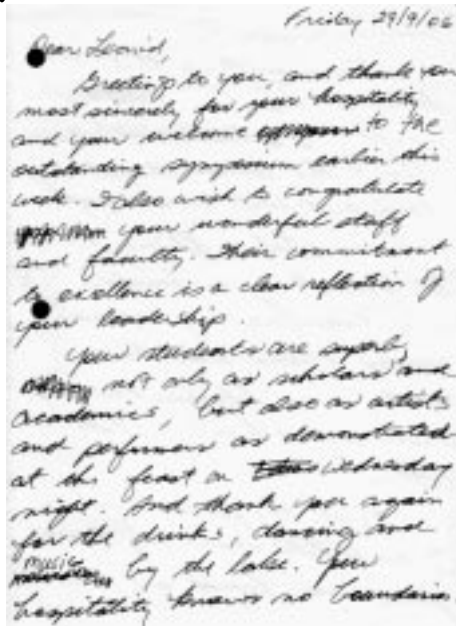 Friday 29/9/06
Dear Leonid,
Greetings to you, and thank you
most sincerely for your hospitality
and your welcome to the
outstanding symposium earlier this
week. I also wish to congratulate
your wonderful staff
and faculty. Their commitment
to excellence is a clear reflection of
your leadership.
Your students are superb,
not only as scholars and
academics, but also as artists
and performers as demonstrated
at the feast on Wednesday
night. And thank you again
for the drinks, dancing and
music by the lake. Your
hospitality knows no boundaries.